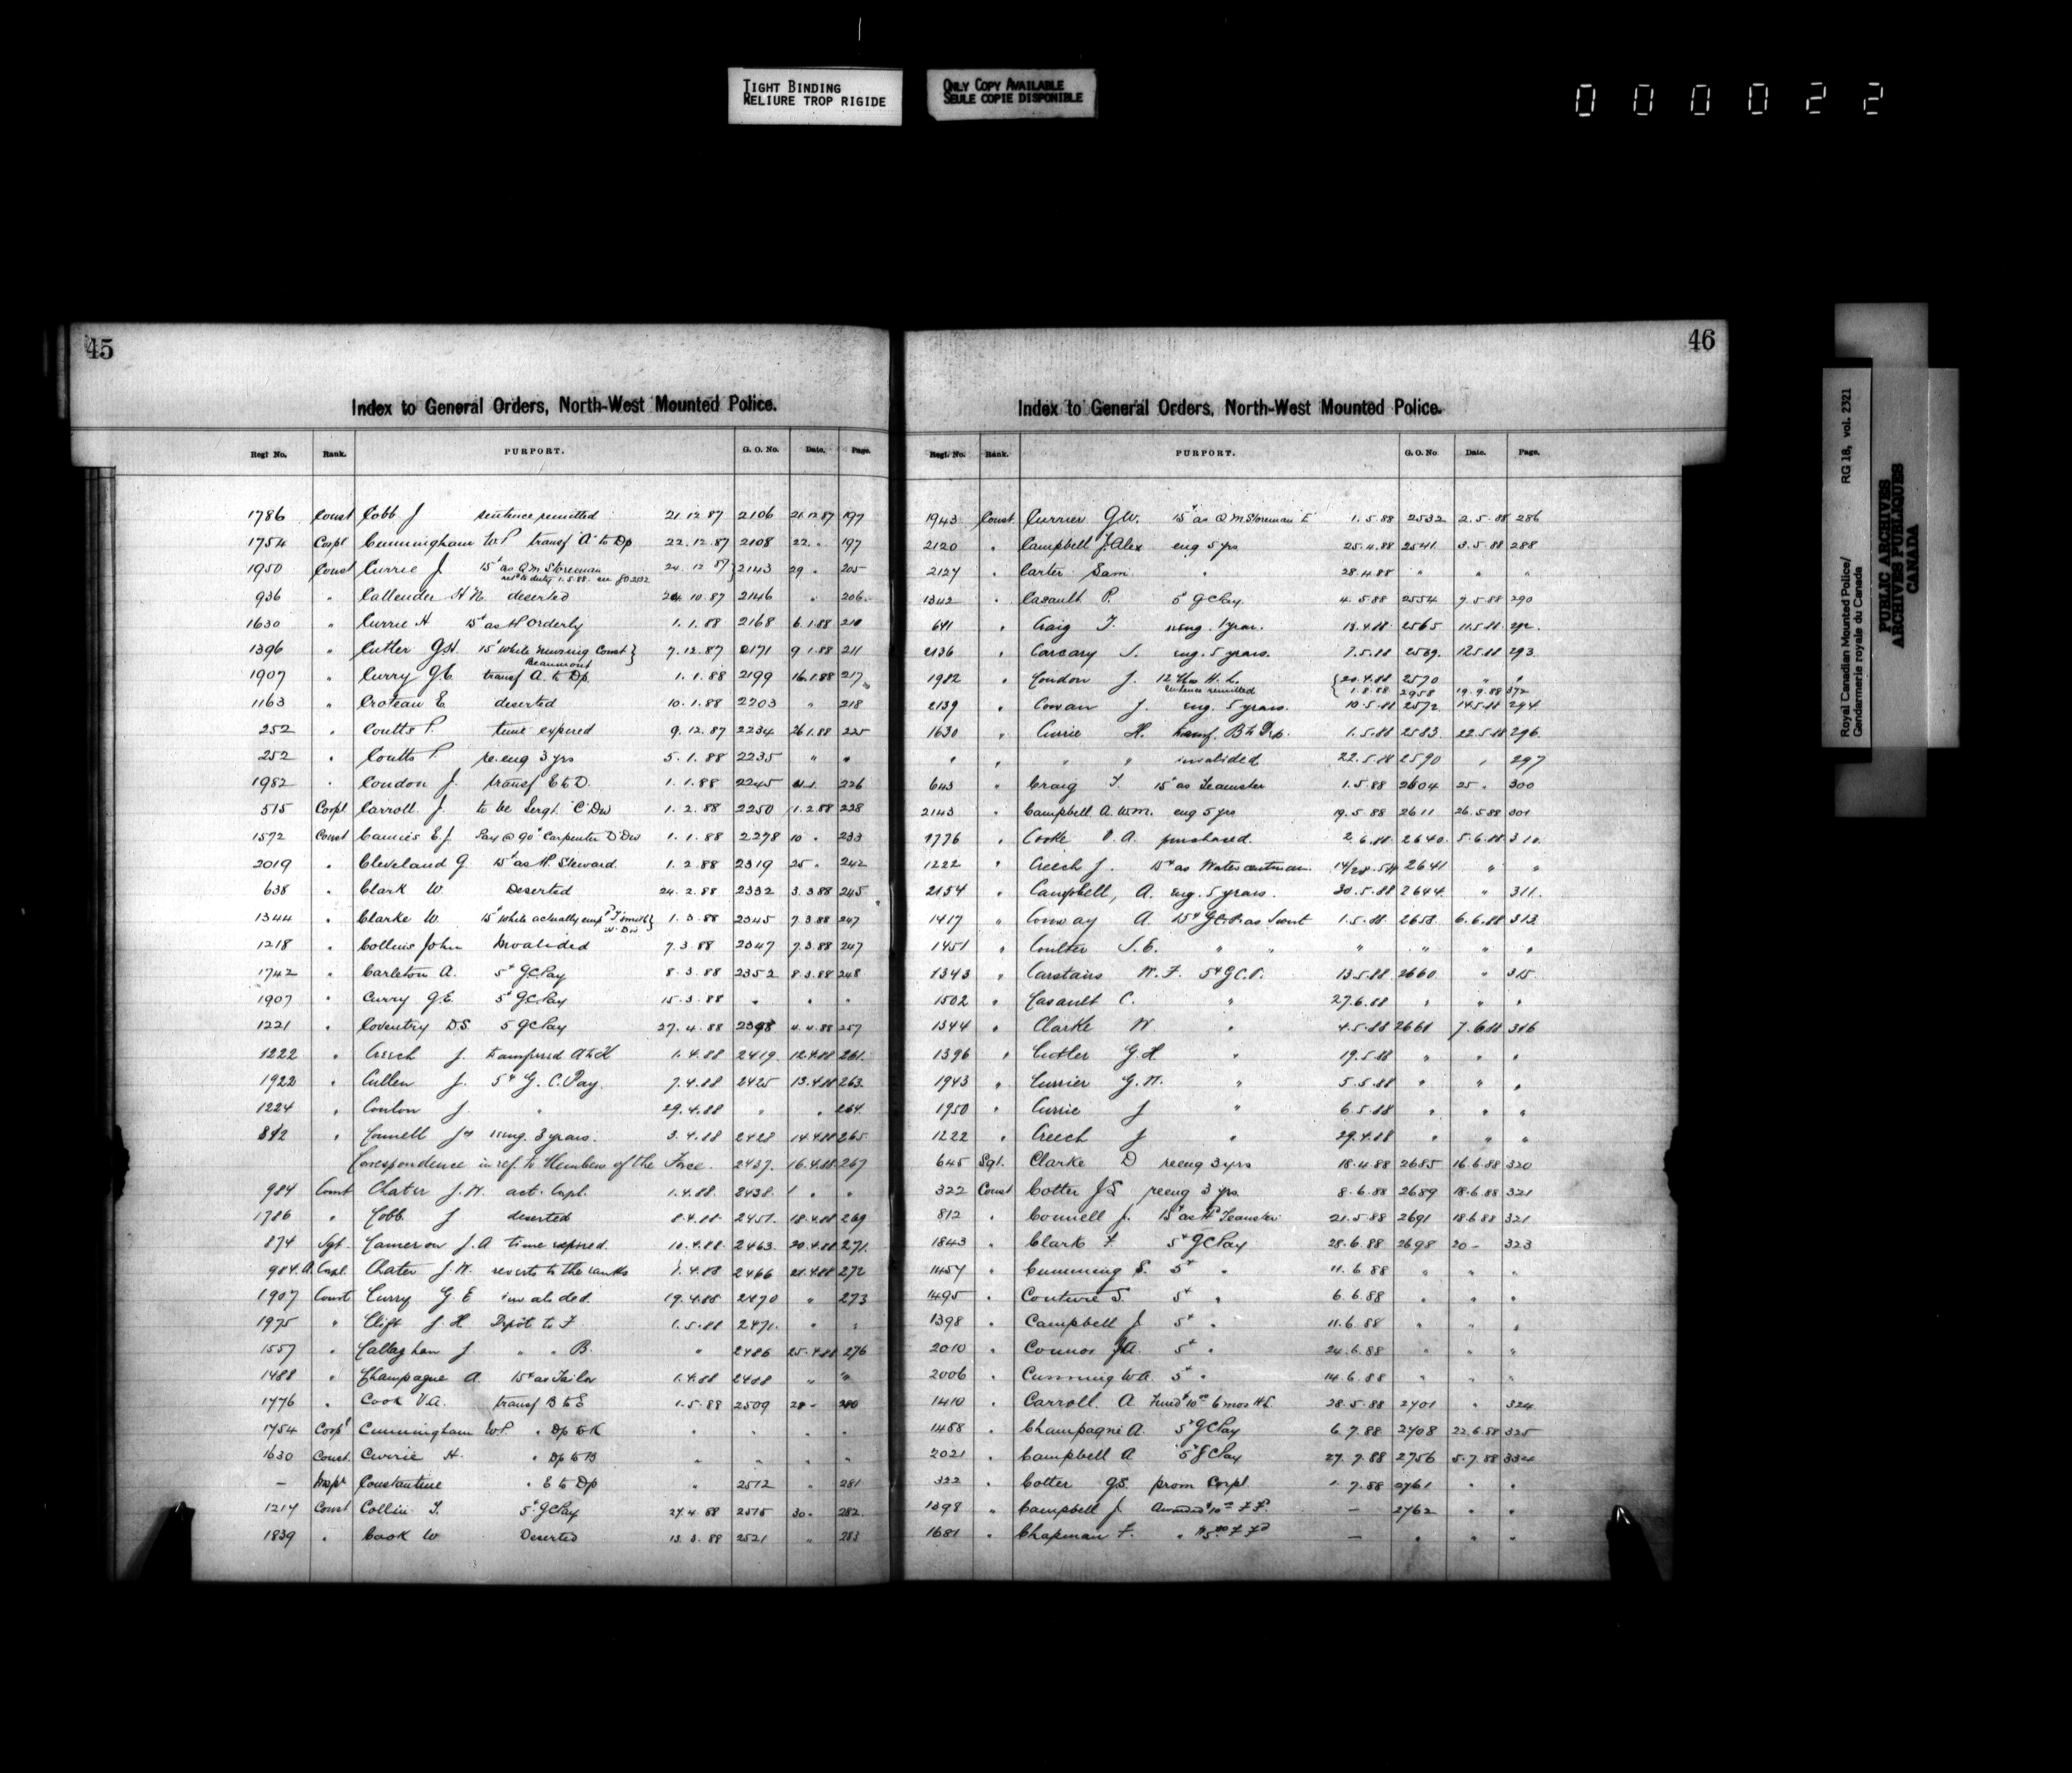 TIGHT BINDING
RELIURE TROP RIGIDE
ONLY COPY AVAILABLE
SEULE COPIE DISPONIBLE
000022
45
Index to General Orders, North-West Mounted Police.
Regt No. Rank. PURPORT. G. O. No. Date. Page.
1786 Const Cobb J sentence remitted 21.12.87 2106 21.12.87 197
1754 Corpl Cunningham W.P transf A to Dp 22.12.87 2108 22 " 197
1950 Const Currie J 15¢ as Q.M. Storeman 24.12.87 } 2143 29 " 205
ret to duty 1.5.88. see GO 2532
936 " Callender H N. deserted 24.10.87 2146 " 206
1630 " Currie H 15¢ as H Orderly 1.1.88 2168 6.1.88 210
1396 " Cutler G.H. 15¢ while nursing Const } 7.12.87 2171 9.1.88 211
Beaumont
1907 " Curry G E transf A to Dp 1.1.88 2199 16.1.88 217
1163 " Croteau E deserted 10.1.88 2203 " 218
252 " Coutts P. time expired 9.12.87 2234 26.1.88 225
252 " Coutts P re.eng 3 yrs 5.1.88 2235 " "
1982 " Condon J. transf E to D. 1.1.88 2245 226
515 Corpl Carroll J. to be Sergt "C" Div 1.2.88 2250 1.2.88 228
1572 Const E.J. Pay @ 90¢ Carpenter D Div 1.1.88 2278 10 " 233
2019 " Cleveland G. 15¢ as H Steward 1.2.88 2319 25 " 242
638 " Clark W. Deserted 24.2.88 2332 3.3.88 245
1344 " Clarke W. 15¢ while actually emp 1.3.88 2345 7.3.88 247
1218 " Collins John Invalided 7.3.88 2347 7.3.88 247
1742 " Carleton A. 5¢ GC Pay 8.3.88 2352 8.3.88 248
1907 " Curry G.E. 5¢ GC Pay 15.3.88 " " "
1221 " Coventry D.S. 5 GC Pay 27.4.88 2398 4.4.88 257
1222 " Creech J. transferred A to K 1.4.88 2419. 12.4.88 261.
1922 " Cullen J. 5¢ G.C. Pay. 7.4.88 2425 13.4.88 263.
1224 " Conlon J " 29.4.88 " " 264
812 " Connell Js reeng. 3 years. 3.4.88 2428 14.4.88 265
Correspondence in ref. to Members of the Force. 2437. 16.4.88 267
984 Const Chater J.W. act. Corpl. 1.4.88. 2438. " "
1786 " Cobb J deserted 8.4.88. 2451. 18.4.88 269
874 Sgt. Cameron J.A time expired. 10.4.88. 2463. 20.4.88 271.
984. A. Corpl. Chater J.W. reverts to the ranks 1.4.88 2466 21.4.88 272
1907 Const Curry G E invalided. 19.4.88 2470 " 273
1975 " Clift J H Depôt to F 1.5.88 2471. " "
1557 " Callaghan J. " " B. " 2486 25.4.88 276
1488 " Champagne A. 15¢ as Tailor 1.4.88 2488 " "
1776 " Cook V.A. transf B to E 1.5.88 2509 28 - 280
1754 Corpl Cunningham W.P. " Dp to K " " " "
1630 Const. Currie H. " Dp to B " " " "
— Inspr Constantine " E to Dp " 2512 281
1217 Const Collin T. 5¢ GC Pay 27.4.88 2515 30 " 282
1839 " Cook W Deserted 13.3.88 2521 " 283
46
Index to General Orders, North-West Mounted Police.
Regt. No. Rank. PURPORT. G.O. No Date. Page.
1943 Const. Currier G.W. 15¢ as Q M Storeman E 1.5.88 2532 2.5.88 286
2120 " Campbell J. Alex eng 5 yrs 25.4.88 2541 3.5.88 288
2127 " Carter Sam. " 28.4.88 " " "
1342 " Casault P. 5¢ GC Pay 4.5.88 2554 7.5.88 290
641 " Craig T. reeng. 1 year. 18.4.88 2565 11.5.88 292.
2136 " Carcary J. eng. 5 years. 7.5.88 2569. 12.5.88 293.
1982 " Condon J. 12 Mos H.L. { 20.4.88 2570 " "
sentence remitted { 1.8.88 2958 19.9.88 372
2139 " Cowan J. eng. 5 years. 10.5.88 2572 14.5.88 294
1630 " Currie H. transf. B to Dp. 1.5.88 2583. 22.5.88 296.
" " " " invalided 22.5.88 2590 " 297
643 " Craig T. 15¢ as Teamster 1.5.88 2604 25 " 300
2143 " Campbell A. W.M. eng 5 yrs 19.5.88 2611 26.5.88 301
1776 " Cooke V.A. purchased. 2.6.88. 2640. 5.6.88 310.
1222 " Creech J. 15¢ as Water cartman 14/28.5.88 2641 " "
2154 " Campbell, A. eng. 5 years. 30.5.88 2644. " 311.
1417 " Conway A. 15¢ as Scout 1.5.88. 2658. 6.6.88 313.
1451 " Coulter S.E. " " " " " "
1343 " Carstairs W.F. 5¢ G.C.P. 13.5.88 2660 " 315
1502 " Casault C. " 27.6.88 " " "
1344 " Clarke W. " 4.5.88 2661 7.6.88 316
1396 " Cutler G.H. " 19.5.88 " " "
1943 " Currier G.W. " 5.5.88 " " "
1950 " Currie J " 6.5.88 " " "
1222 " Creech J " 29.4.88 " " "
645 Sgt. Clarke D reeng 3 yrs 18.4.88 2685 16.6.88 320
322 Const Cotter J S reeng 3 yrs. 8.6.88 2689 18.6.88 321
812 " Connell J. 15¢ as H Teamster 21.5.88 2691 18.6.88 321
1843 " Clark F. 5¢ GC Pay 28.6.88 2698 20 - 323
1457 " Cumming S. 5¢ " 11.6.88 " " "
1495 " Couture S. 5¢ " 6.6.88 " " "
1398 " Campbell J. 5¢ " 11.6.88 " " "
2010 " Connor J.A. 5¢ " 24.6.88 " " "
2006 " Cunning W.A. 5¢ " 14.6.88 " " "
1410 " Carroll. A Fined $10 6 mos H L 28.5.88 2701 " 324
1488 " Champagne A. 5¢ GC Pay 6.7.88 2708 22.6.88 325
2021 " Campbell A 5¢ GC Pay 27.7.88 2756 5.7.88 334
322 " Cotter J.S. prom Corpl 1.7.88 2761 " "
1398 " Campbell J. Awarded $10 F F. — 2762 " "
1681 " Chapman F. " $5 F Fd — " " "
Royal Canadian Mounted Police/ RG 18, vol. 2321
Gendarmerie royale du Canada
PUBLIC ARCHIVES
ARCHIVES PUBLIQUES
CANADA